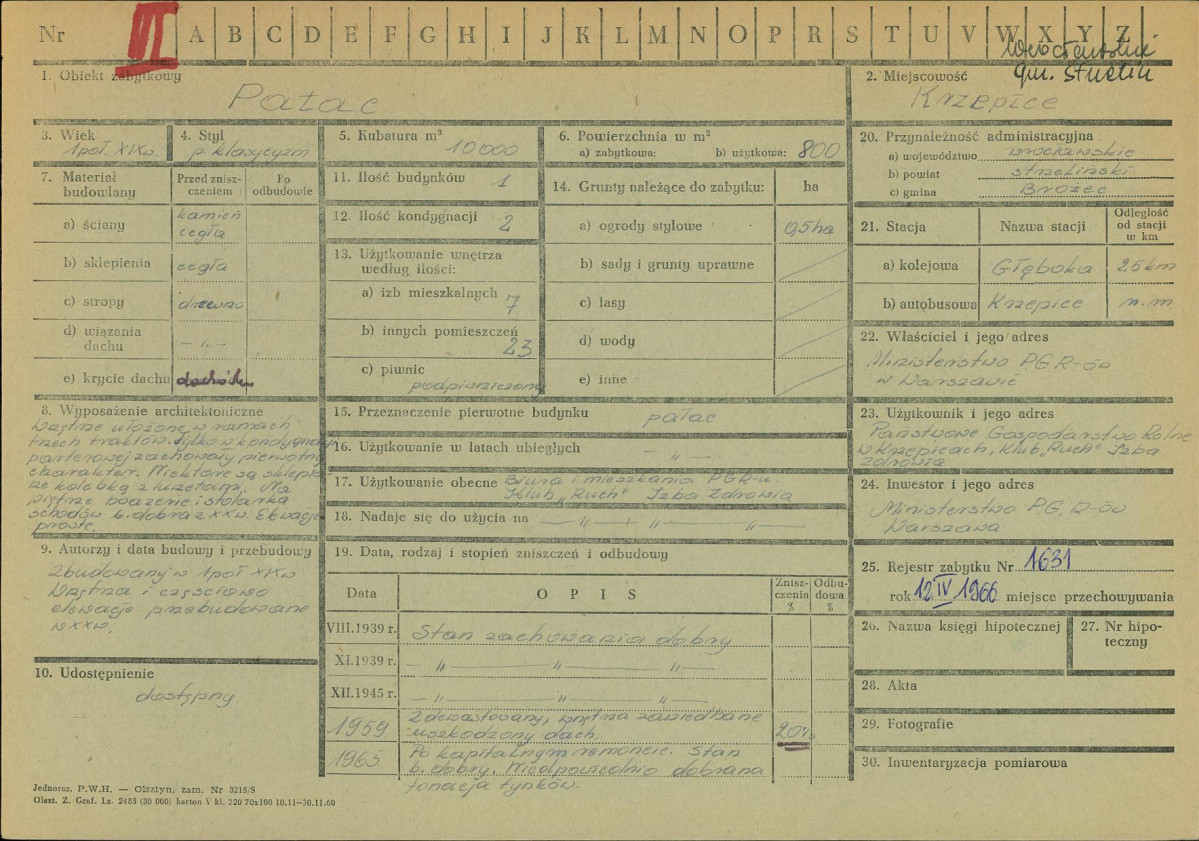 Nr VI A B C D E F G H I J K L M N O P R S T U V W X Y Z
gm. Strzelin
1. Obiekt zabytkowy
Pałac
2. Miejscowość
Krzepice
3. Wiek
1 poł. XIX w.
4. Styl
p. klasycyzm
5. Kubatura m³
10 000
6. Powierzchnia w m²
a) zabytkowa: b) użytkowa: 800
7. Materiał budowlany
Przed zniszczeniem
Po odbudowie
a) ściany kamień cegła
b) sklepienia cegła
c) stropy drewno
d) wiązania dachu — " —
e) krycie dachu dachówka
8. Wyposażenie architektoniczne
Wnętrze ułożone w ramach
trzech traktów. Tylko w kondygnacji
parterowej zachowały pierwotny
charakter. Niektóre są sklepi
ze kolebką z lunetami. Na
piętrze boazerie i stolarka
schodów b. dobra z XX w. Elewacje
proste.
9. Autorzy i data budowy i przebudowy
Zbudowany w 1 poł XIX w
Wnętrza i częściowo
elewacje przebudowane
w XX w.
10. Udostępnienie
dostępny.
11. Ilość budynków 1
12. Ilość kondygnacji 2
13. Użytkowanie wnętrza
według ilości:
a) izb mieszkalnych 7
b) innych pomieszczeń 23
c) piwnic
podpiwniczony
14. Grunty należące do zabytku: ha
a) ogrody stylowe 0,5 ha
b) sady i grunty uprawne
c) lasy
d) wody
e) inne
15. Przeznaczenie pierwotne budynku pałac
16. Użytkowanie w latach ubiegłych — " —
17. Użytkowanie obecne Biura i mieszkania PGR-u.
Klub „Ruch" Izba Zdrowia
18. Nadaje się do użycia na — " — " — " —
19. Data, rodzaj i stopień zniszczeń i odbudowy
Data OPIS Zniszczenia % Odbudowa %
VIII.1939 r. Stan zachowania dobry
XI.1939 r. — " — " — " —
XII.1945 r. — " — " — " —
1959 Zdewastowany, wnętrza zaniedbane
uszkodzony dach. 20%
1965 Po kapitalnym remoncie. Stan
b. dobry. Nieodpowiednio dobrana
tonacja tynków.
20. Przynależność administracyjna
a) województwo wrocławskie
b) powiat strzeliński
c) gmina Brożec
21. Stacja Nazwa stacji Odległość od stacji w km
a) kolejowa Głęboka 2,5 km
b) autobusowa Krzepice n. m
22. Właściciel i jego adres
Ministerstwo PGR-ów
w Warszawie
23. Użytkownik i jego adres
Państwowe Gospodarstwo Rolne
w Krzepicach, Klub „Ruch" Izba
Zdrowia
24. Inwestor i jego adres
Ministerstwo P.G.R-ów
Warszawa
25. Rejestr zabytku Nr 1631
rok 12 IV 1966 miejsce przechowywania
26. Nazwa księgi hipotecznej
27. Nr hipoteczny
28. Akta
29. Fotografie
30. Inwentaryzacja pomiarowa
Jednoraz. P.W.H. — Olsztyn, zam. Nr 3215/S
Olszt. Z. Graf. Lz. 2485 (30 000) karton V kl. 220 70x100 10.11—30.11.60